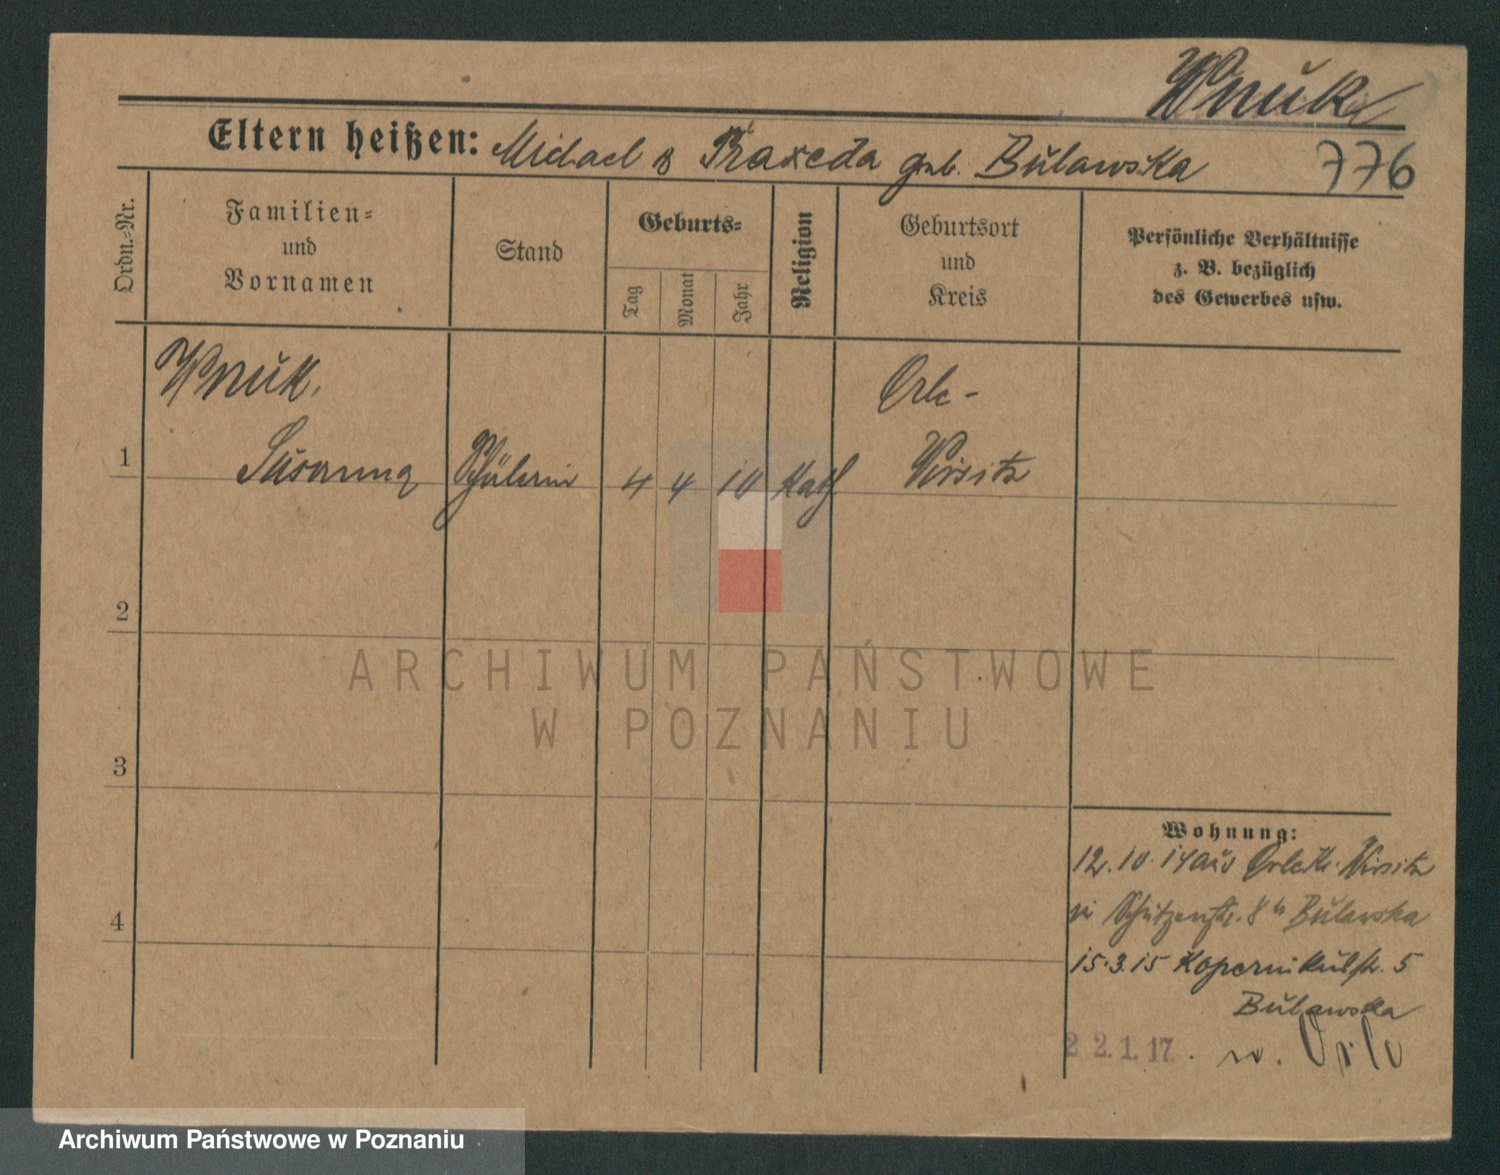 Wnuk
Eltern heißen: Michael & Praxeda geb. Bulawska
776
Ordn.-Nr.
Familien-
und
Vornamen
Stand
Geburts-
Tag
Monat
Jahr
Religion
Geburtsort
und
Kreis
Persönliche Verhältnisse
z. B. bezüglich
des Gewerbes usw.
Wnuk.
Orle-
1
Susanna Schülerin 4 4 10 Kath Wirsitz
2
3
4
ARCHIWUM PAŃSTWOWE
W POZNANIU
Wohnung:
12.10.14 aus Orle Kr. Wirsitz
Schützenstr. 8 b Bulawska
15.3.15 Kopernikusstr. 5
Bulawska
22.1.17. n. Orle
Archiwum Państwowe w Poznaniu